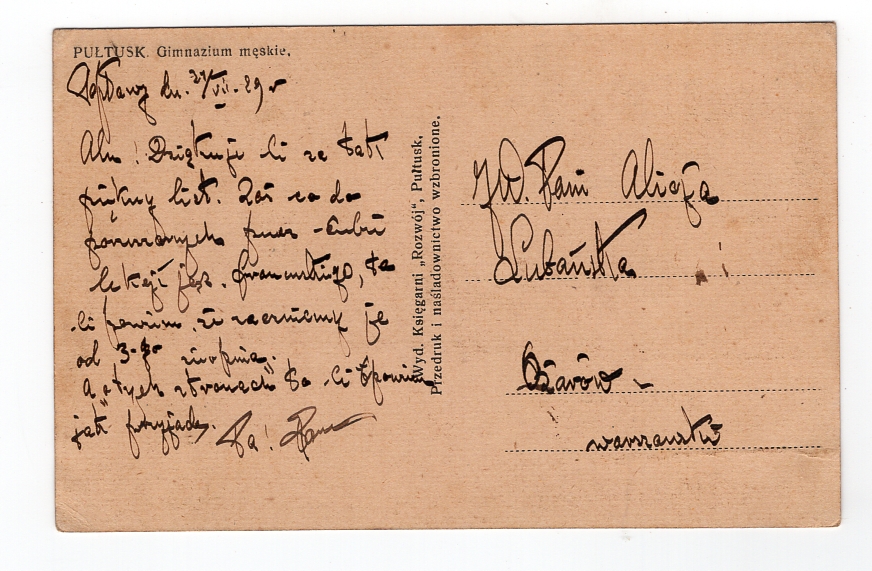 PUŁTUSK. Gimnazium męskie.
dn. 24/VII-29 r
Alu! Dziękuję Ci za tak
piękny list. Zaś co do
poruszonych przez Ciebie
lekcji jęz. francuskiego, to
Ci powiem, że zaczniemy je
od 3-go sierpnia.
A o "tych stronach" to Ci opowiem
jak przyjadę. Pa!
Wyd. Księgarni „Rozwój“, Pułtusk.
Przedruk i naśladownictwo wzbronione.
JW. Pani Alicja
Lubańska
Ożarów
warszawski